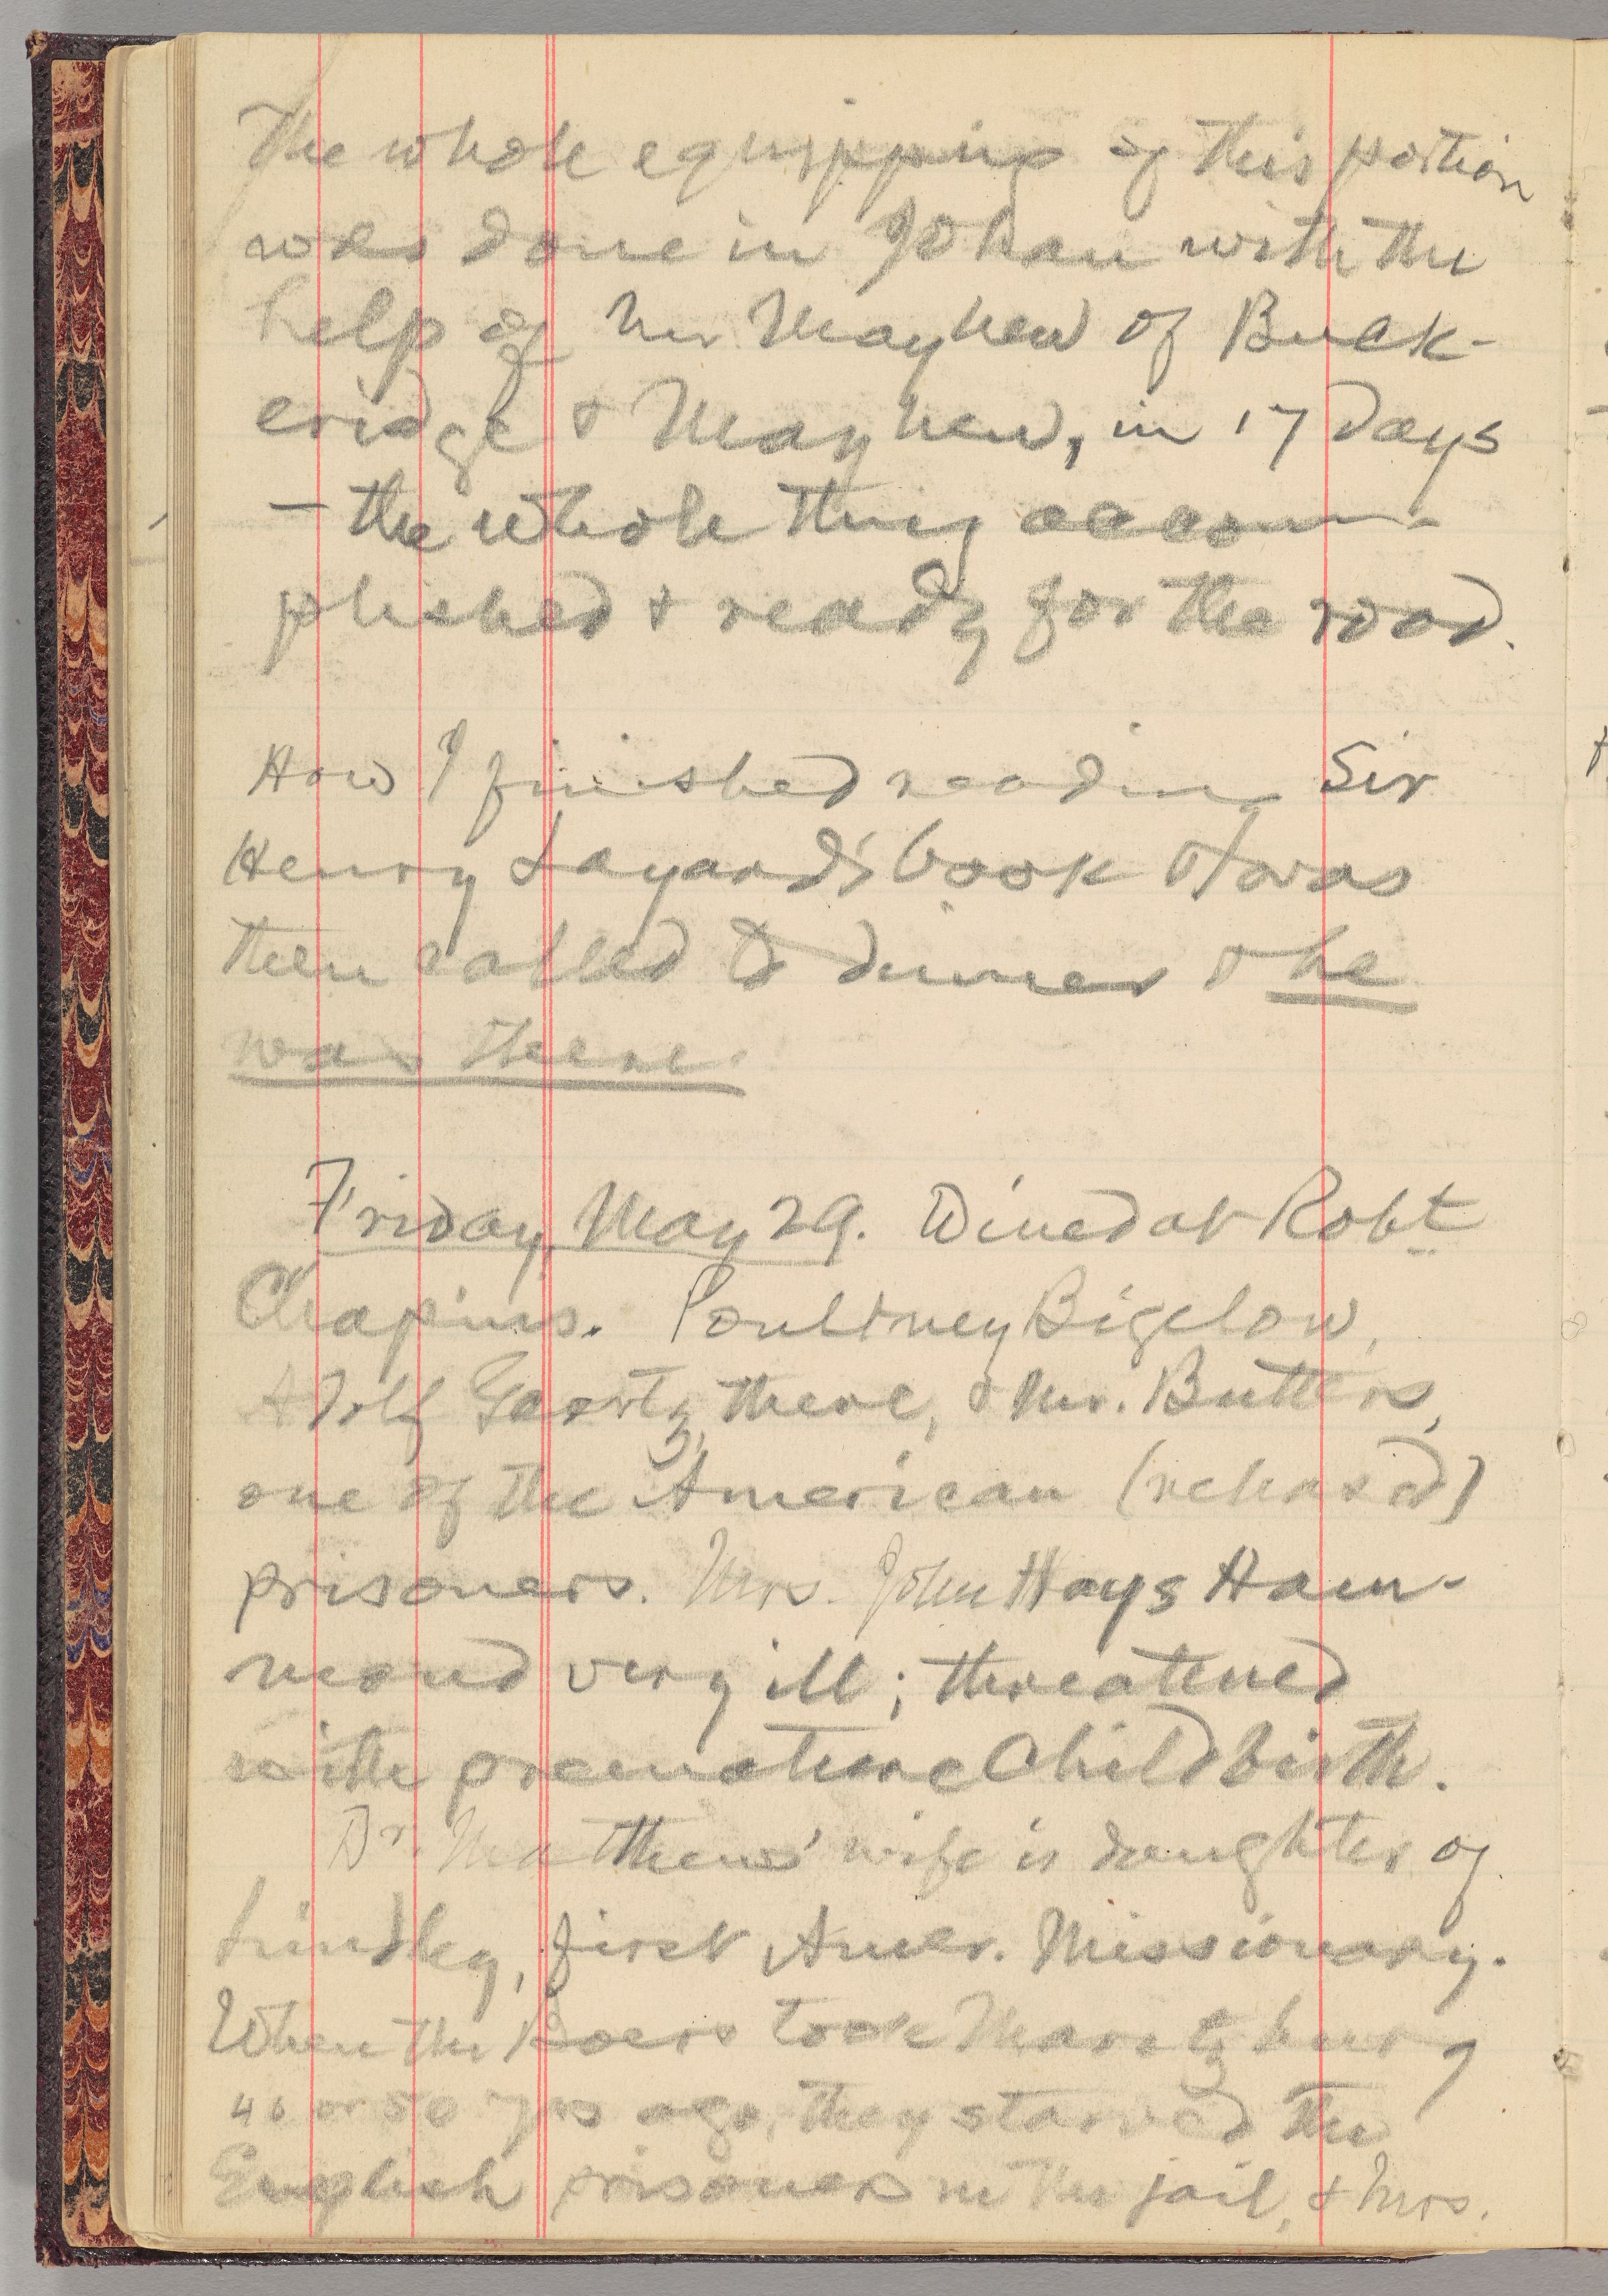 The whole equipping of this portion
was done in Johan with the
help of Mr Mayhew of Buck-
eridge & Mayhew, in 17 days
— the whole thing accom-
plished & ready for the road.
How I finished reading Sir
Henry Layard's book & was
then called to dinner & he
was there.
Friday, May 29. Dined at Robt
Chapins. Poultney Bigelow,
Adolf Goertz, there, & Mr. Butters,
one of the American (released)
prisoners. Mrs. John Hays Ham-
mond very ill; threatened
with premature Childbirth.
Dr. Matthews' wife is daughter of
Lindley, first Amer. Missionary.
When the Boers took Maritzburg
40 or 50 yrs ago, they starved the
English prisoners in the jail, & Mrs.